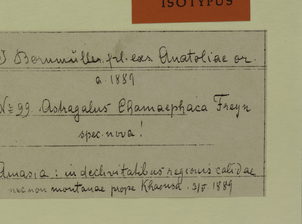 ISOTYPUS
J. Bornmüller pl. exs. Anatoliae or.
a. 1889
No 99. Astragalus Chamaephaca Freyn
spec. nova!
Amasia: in declivitatibus regionis calidae
nec non montanae prope 3/5 1889